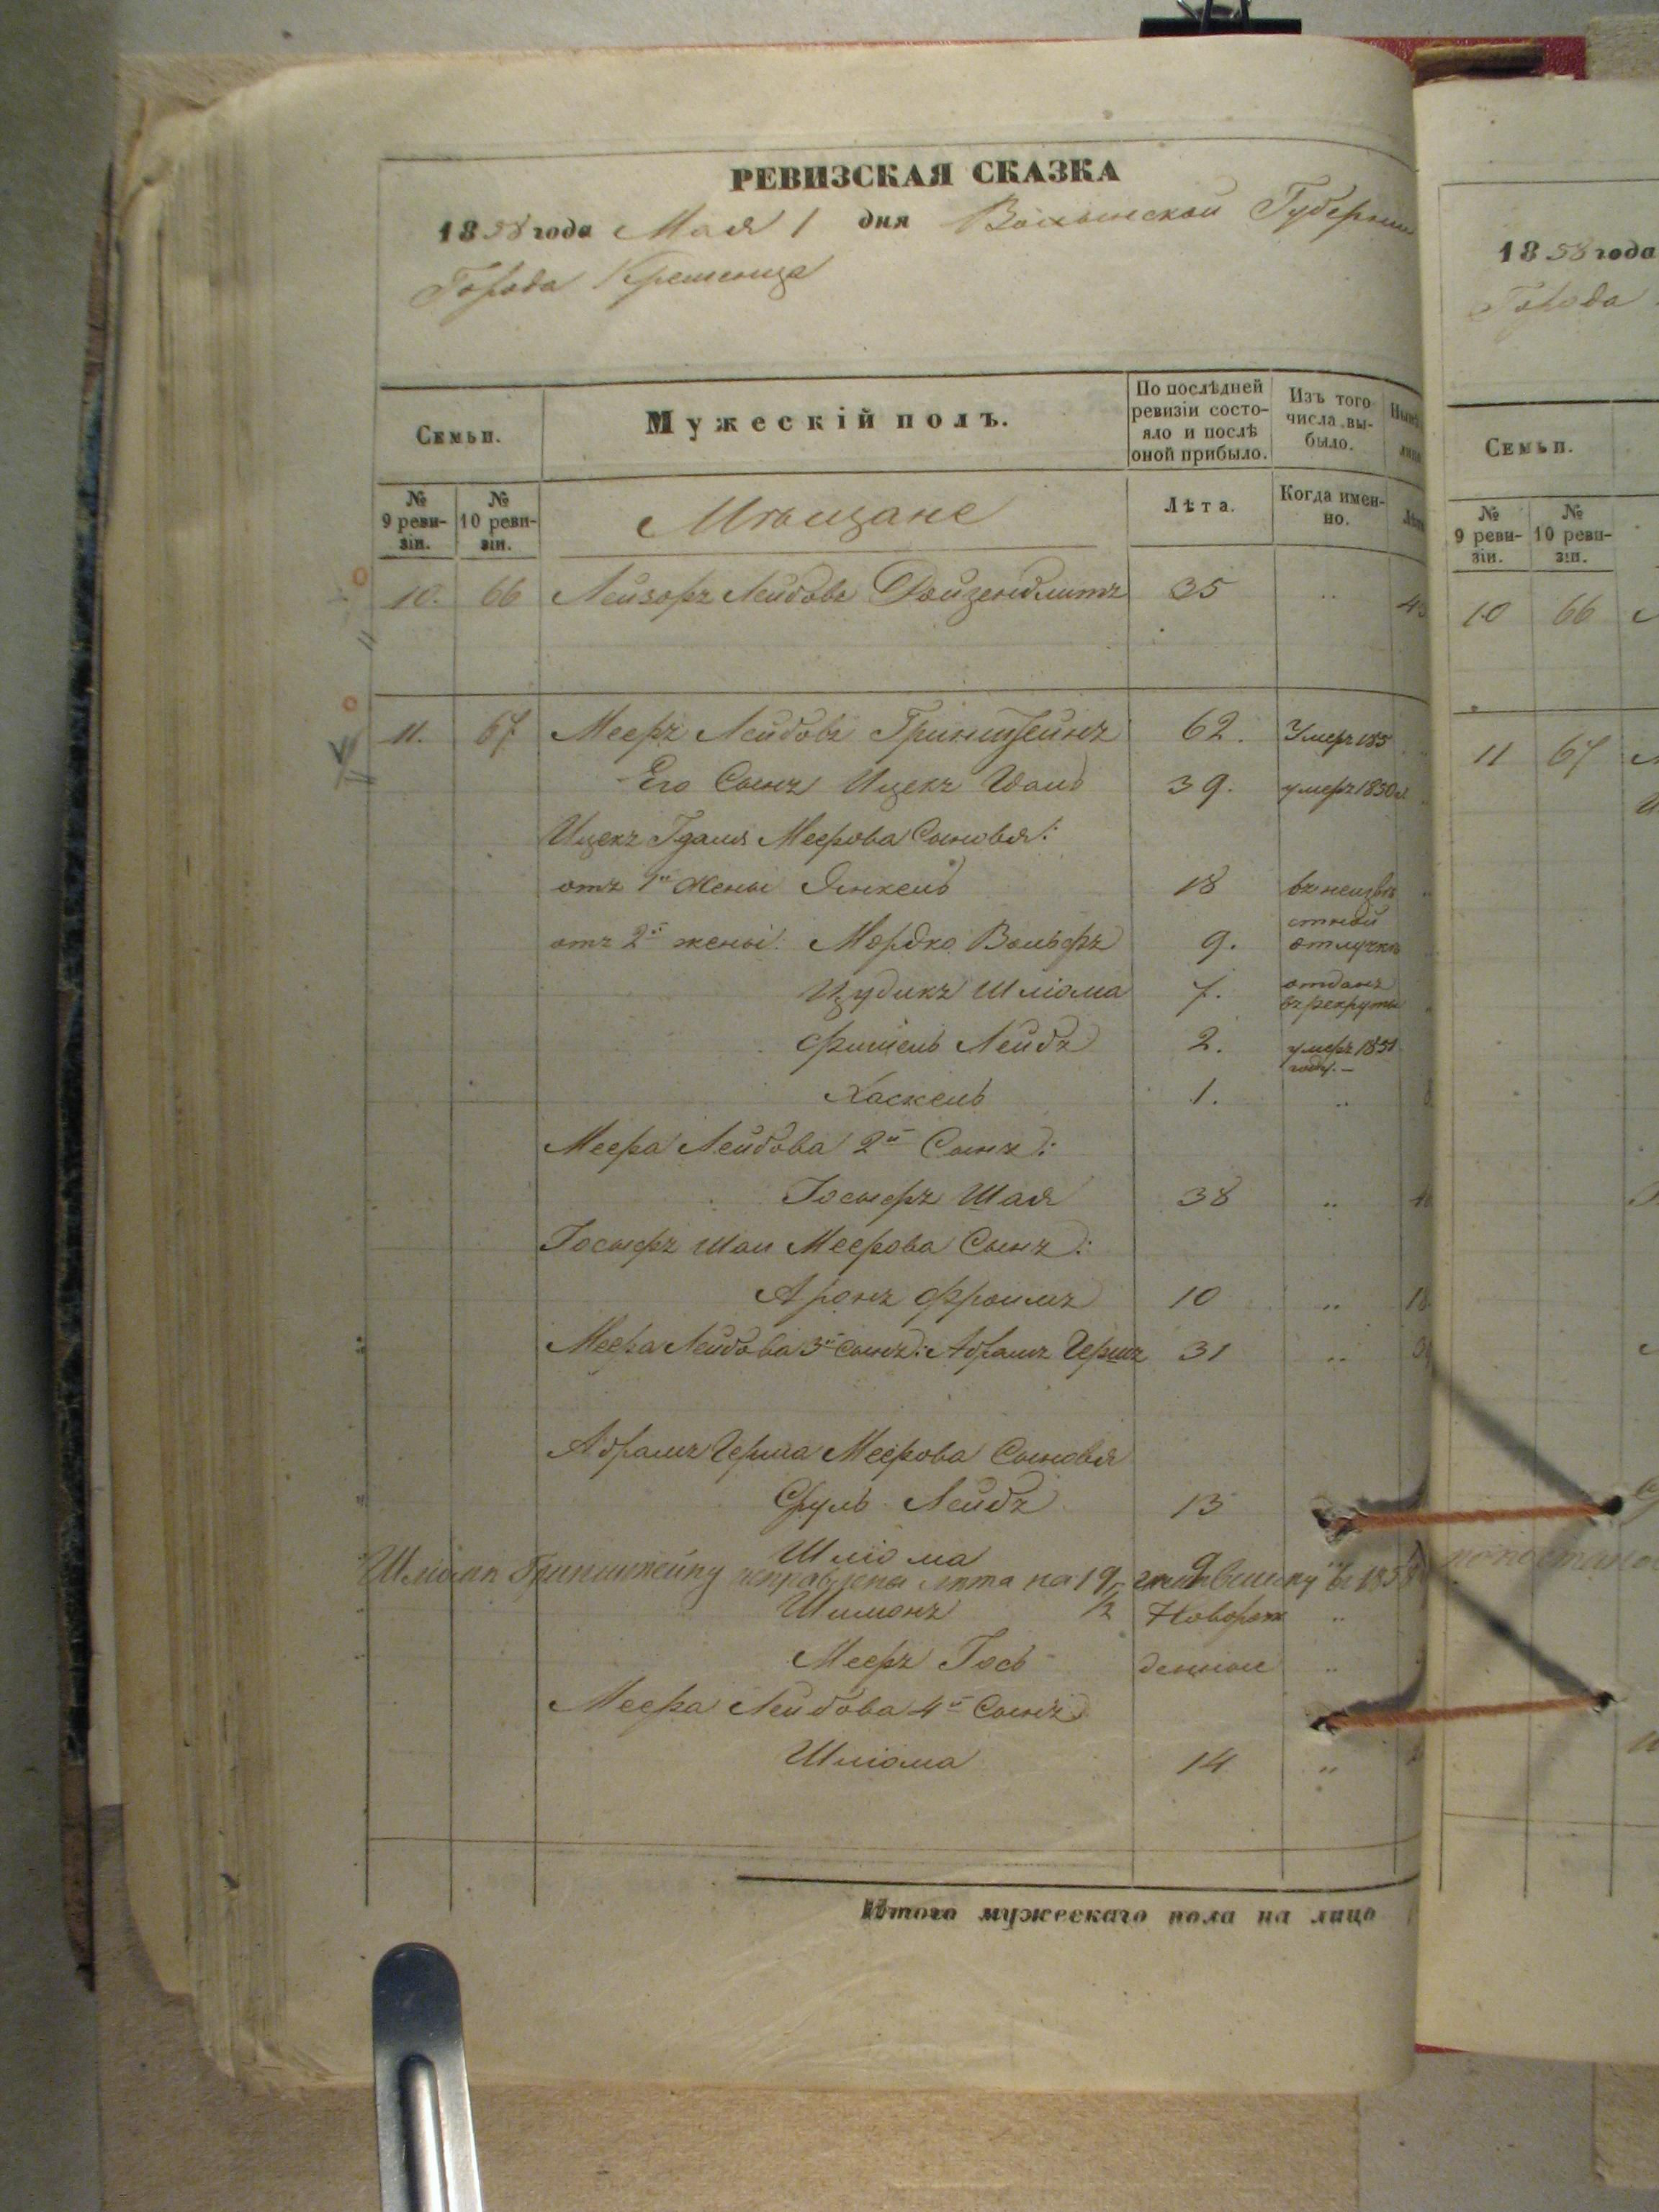 РЕВИЗСКАЯ СКАЗКА
1858 года Мая 1 дня Волынской Губернии
Города Кременца
Семьи.
Мужескій полъ.
По послѣдней ревизіи состояло и послѣ оной прибыло.
Изъ того числа выбыло.
№ 9 ревизіи.
№ 10 ревизіи.
Мѣщане
Лѣта.
Когда именно.
10. 66 Лейзоръ Лейбовъ 35 ..
11. 67 Мееръ Лейбовъ Гринштейнъ 62. Умеръ 185
Его Сынъ Ицекъ 39. умеръ 1850
Ицекъ Гдаля Меерова Сыновья:
отъ 1й жены Янкель 18 въ неизвѣстной отлучкѣ
отъ 2й жены: Мордко Вольфъ 9.
Цудикъ Шліома 7. отданъ въ рекруты
Фишель Лейбъ 2. умеръ 1851 году. –
Хаскель 1. ..
Меера Лейбова 2й Сынъ:
Іосыфъ Шая 38 ..
Іосыфъ Шаи Меерова Сынъ:
Аронъ Фроимъ 10 ..
Меера Лейбова 3й Сынъ: Абрамъ Гершъ 31 ..
Абрамъ Герша Меерова Сыновья
Сруль Лейбъ 13
Шліома 9 ..
Шліомѣ Гринштейну исправлены лѣта на 19 въ 1858
Шимонъ Новорож ..
Мееръ Іось денные ..
Меера Лейбова 4й Сынъ
Шліома 14 ..
Итого мужескаго пола на лицо
1858 года
Города
Семьи.
№ 9 ревизіи.
№ 10 ревизіи.
10 66
11 67